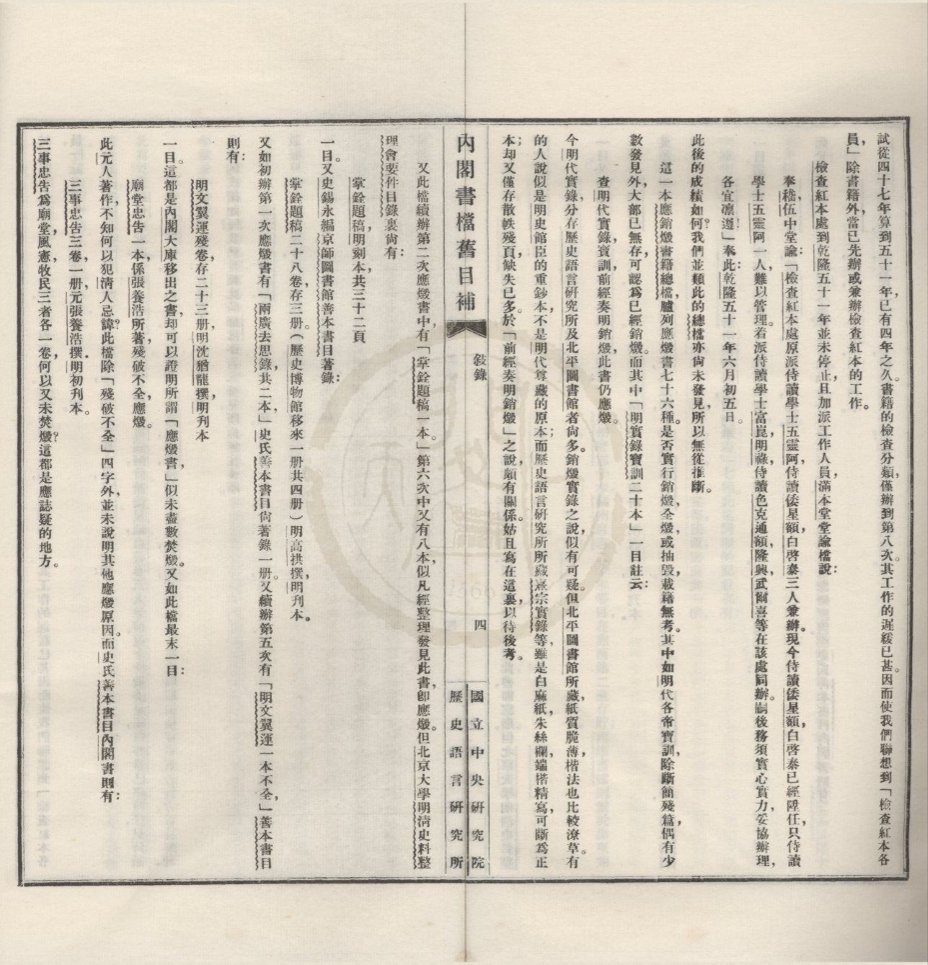 試從四十七年算到五十一年已有四年之久，書籍的檢查分類，僅辦到第八次，其工作的遲緩已甚。因而使我們聯想到「檢查紅本各
員」除書籍外，當已先辦或兼辦檢查紅本的工作。
檢查紅本處到乾隆五十一年並未停止，且加派工作人員，滿本堂堂諭檔說：
奉嵇伍中堂諭：「檢查紅本處原派侍讀學士五靈阿，侍讀倭星額，白啓泰三人兼辦。現今侍讀倭星額，白啓泰已經陞任，只侍讀
學士五靈阿一人，難以管理。着派侍讀學士富崑，明祿，侍讀色克通額，隆興，武爾喜等在該處同辦。嗣後務須實心實力妥協辦理，
各宜凛遵」奉此。乾隆五十一年六月初五日。
此後的成績如何？我們並類此的總檔亦尙未發見，所以無從推斷。
這一本應銷燬書籍總檔，臚列應燬書七十六種，是否實行銷燬，全燬，或抽毀，載籍無考。其中如明代各帝寶訓，除斷簡殘篇，偶有少
數發見外，大部已無存，可認爲已經銷燬。而其中「明實錄寶訓二十本」一目註云：
查明代實錄寶訓，前經奏明銷燬，此書仍應燬。
今明代實錄，分存歷史語言硏究所及北平圖書館者尙多，銷燬實錄之說，似有可疑。但北平圖書館所藏，紙質脆薄，楷法也比較潦草，有
的人說似是明史館臣的重鈔本，不是明代尊藏的原本；而歷史語言硏究所所藏熹宗實錄等，雖是白麻紙，朱絲欄，端楷精寫，可斷爲正
本，却又僅存散帙殘頁，缺失已多，於「前經奏明銷燬」之說，頗有關係。姑且寫在這裏，以待後考。
內閣書檔舊目補 敍錄 四 國立中央硏究院
歷史語言硏究所
又此檔續辦第二次應燬書中，有「掌銓題稿一本，」第六次中又有八本，似凡經整理發見此書，卽應燬。但北京大學明清史料整
理會要件目錄裏尙有：
掌銓題稿，明刻本，共三十二頁
一目。又史錫永編京師圖書館善本書目著錄：
掌銓題稿二十八卷存三册。（歷史博物館移來一册共四册）明高拱撰，明刊本。
又如初辦第一次應燬書有「兩廣去思錄，其二本，」史氏善本書目尙著錄一册。又續辦第五次有「明文翼運一本不全，」善本書目
則有：
明文翼運殘卷存二十三册明沈猶龍撰明刊本
一目，這都是內閣大庫移出之書，却可以證明所謂「應燬書」似未盡數焚燬。又如此檔最末一目：
廟堂忠告一本，係張養浩所著，殘破不全，應燬。
此元人著作，不知何以犯清人忌諱？此檔除「殘破不全」四字外，並未說明其他應燬原因。而史氏善本書目內閣書則有：
三事忠告三卷一册，元張養浩撰，明初刊本。
三事忠告爲廟堂，風憲，牧民三者各一卷，何以又未焚燬？這都是應誌疑的地方。